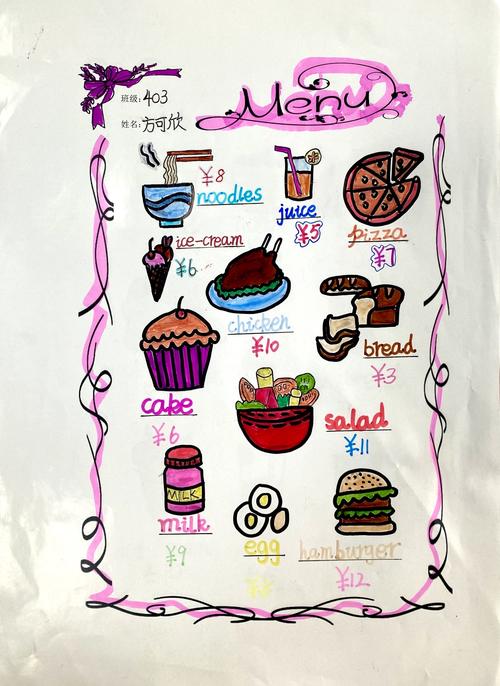 班级: 403
Menu
姓名: 方可欣
¥8
noodles
juice
¥5
pizza
¥7
ice-cream
¥6
chicken
¥10
bread
¥3
cake
¥6
salad
¥11
MILK
milk
¥9
egg
hamburger
¥12